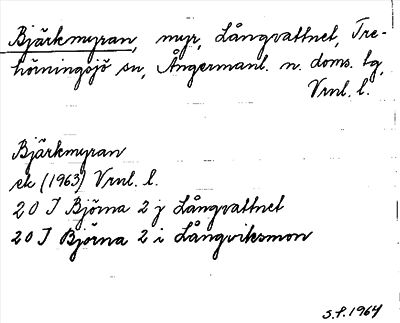 Bjärkmyran, myr, Långvattnet, Tre-
hörningsjö sn, Ångermanl. n. doms. tg,
Vrnl. l.
Bjärkmyran
ek (1963) Vrnl. l.
20 I Björna 2 j Långvattnet
20 I Björna 2 i Långviksmon
S.F. 1964